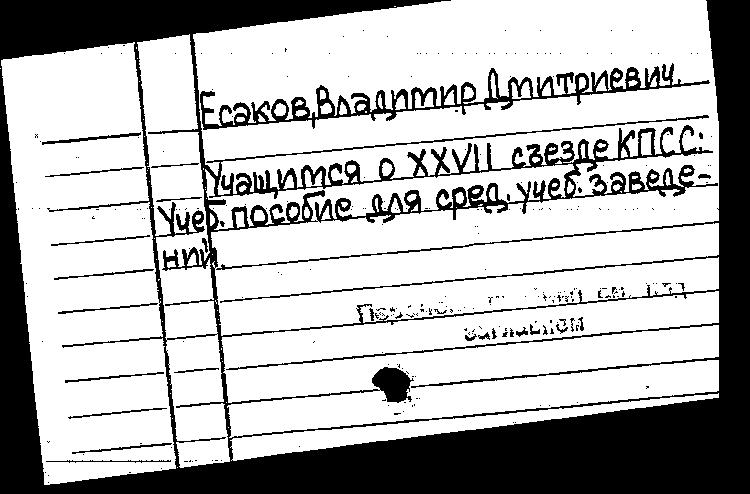 Есаков, Владимир Дмитриевич.
Учащимся о XXVII съезде КПСС:
Учеб. пособие для сред. учеб. заведе-
ний.
см. под
заглавием